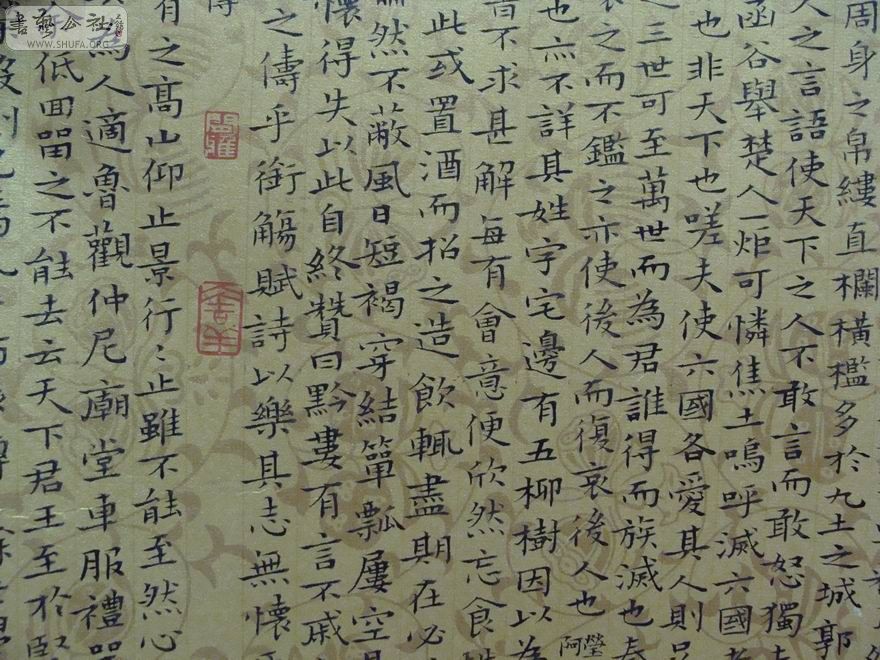 周身之帛縷直欄橫檻多於九土之城郭
人之言語使天下之人不敢言而敢怒獨
函谷舉楚人一炬可憐焦土嗚呼滅六國
也非天下也嗟夫使六國各愛其人則
之三世可至萬世而為君誰得而族滅也秦
之而不鑑之亦使後人而復哀後人也
也亦不詳其姓字宅邊有五柳樹因以為
不求甚解每有會意便欣然忘食
此或置酒而招之造飲輒盡期在必
然不蔽風日短褐穿結簞瓢屢空
懷得失以此自終贊曰黔婁有言不戚
之儔乎銜觴賦詩以樂其志無懷
有之高山仰止景行々止雖不能至然心
為人適魯觀仲尼廟堂車服禮
低回留之不能去云天下君王至於賢
書藝公社
WWW.SHUFA.ORG